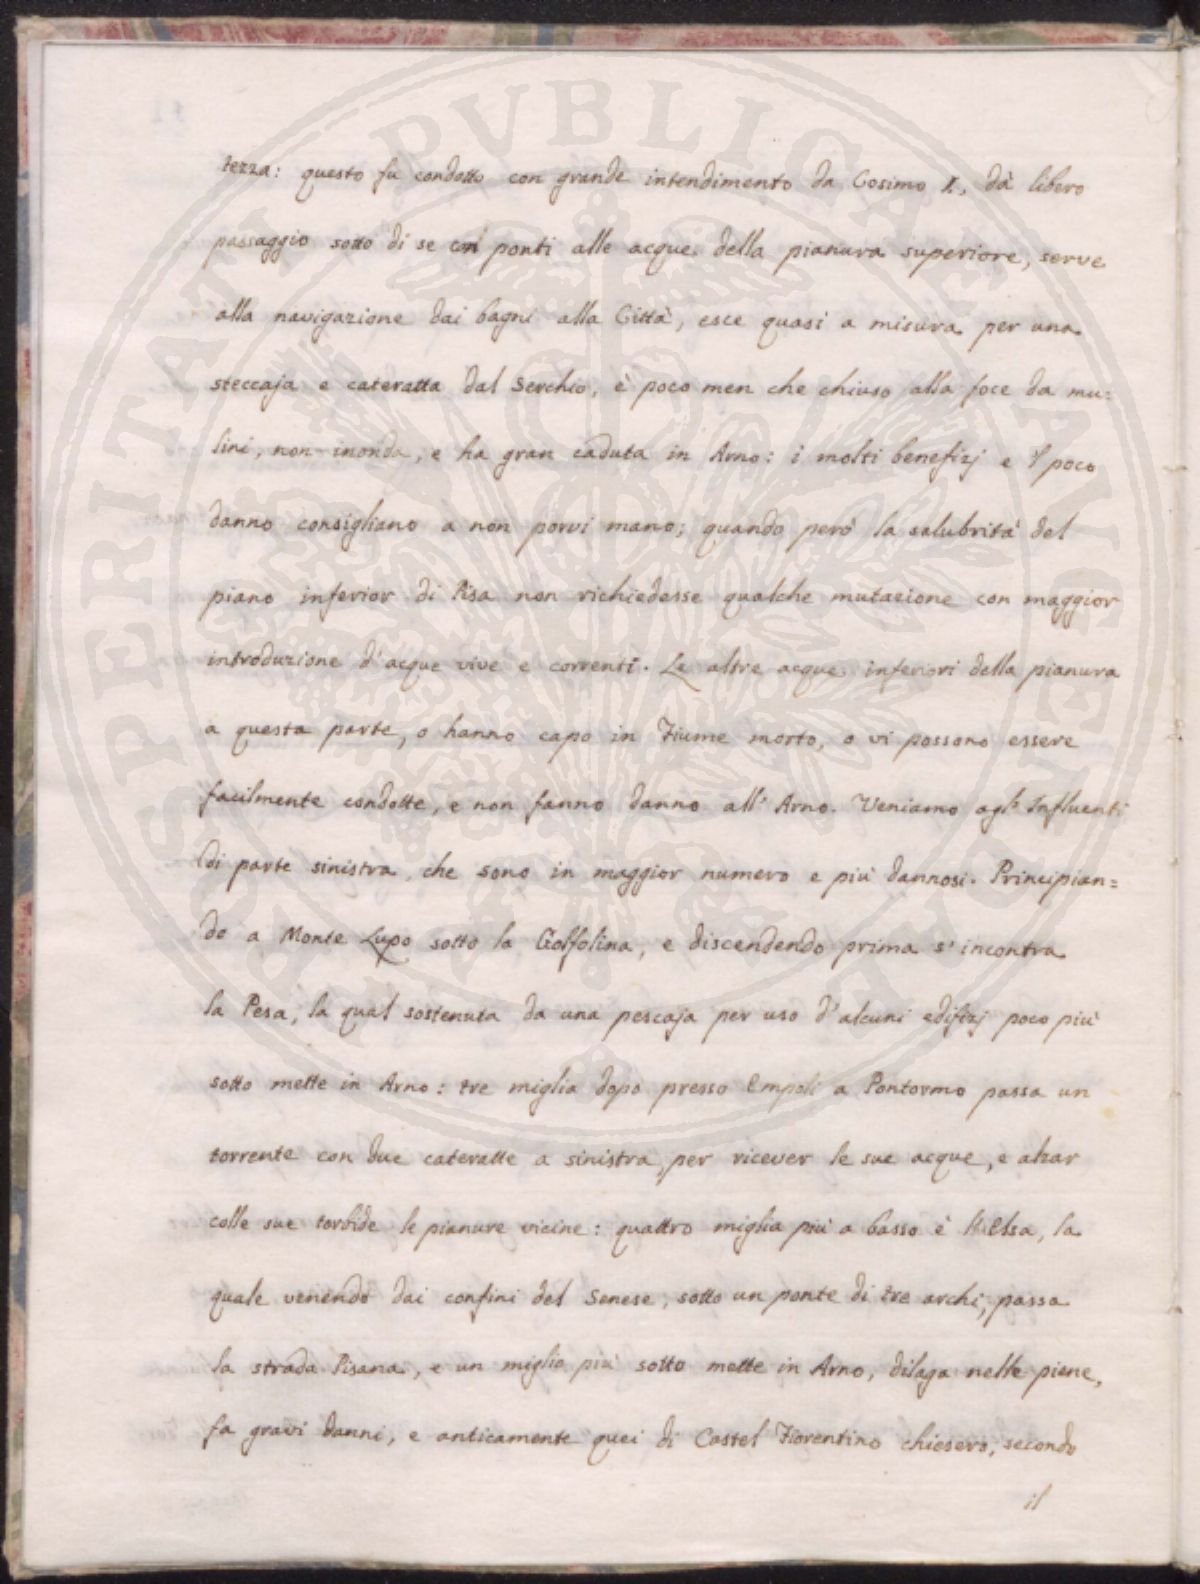 tezza: questo fu condotto con grande intendimento da Cosimo I., dà libero
passaggio sotto di se con ponti alle acque della pianura superiore, serve
alla navigazione dai bagni alla Città, esce quasi a misura per una
steccaja e cateratta dal Serchio, è poco men che chiuso alla foce da mu:
lini, non inonda, e ha gran caduta in Arno: i molti benefizj e 'l poco
danno consigliano a non porvi mano; quando però la salubrità del
piano inferior di Pisa non richiedesse qualche mutazione con maggior
introduzione d'acque vive e correnti. Le altre acque inferiori della pianura
a questa parte, o hanno capo in Fiume morto, o vi possono essere
facilmente condotte, e non fanno danno all' Arno. Veniamo agl' Influenti
di parte sinistra, che sono in maggior numero e più dannosi. Principian=
do a Monte Lupo sotto la Golfolina, e discendendo prima s' incontra
la Pesa, la qual sostenuta da una pescaja per uso d' alcuni edifizj poco più
sotto mette in Arno: tre miglia dopo presso Empoli a Pontormo passa un
torrente con due cateratte a sinistra, per ricever le sue acque, e alzar
colle sue torbide le pianure vicine: quattro miglia più a basso è l'Elsa, la
quale venendo dai confini del Senese, sotto un ponte di tre archi, passa
la strada Pisana, e un miglio più sotto mette in Arno, dilaga nelle piene,
fa gravi danni, e anticamente quei di Castel Fiorentino chiesero, secondo
il
PROSPERITATI PVBLICAE AVGENDAE